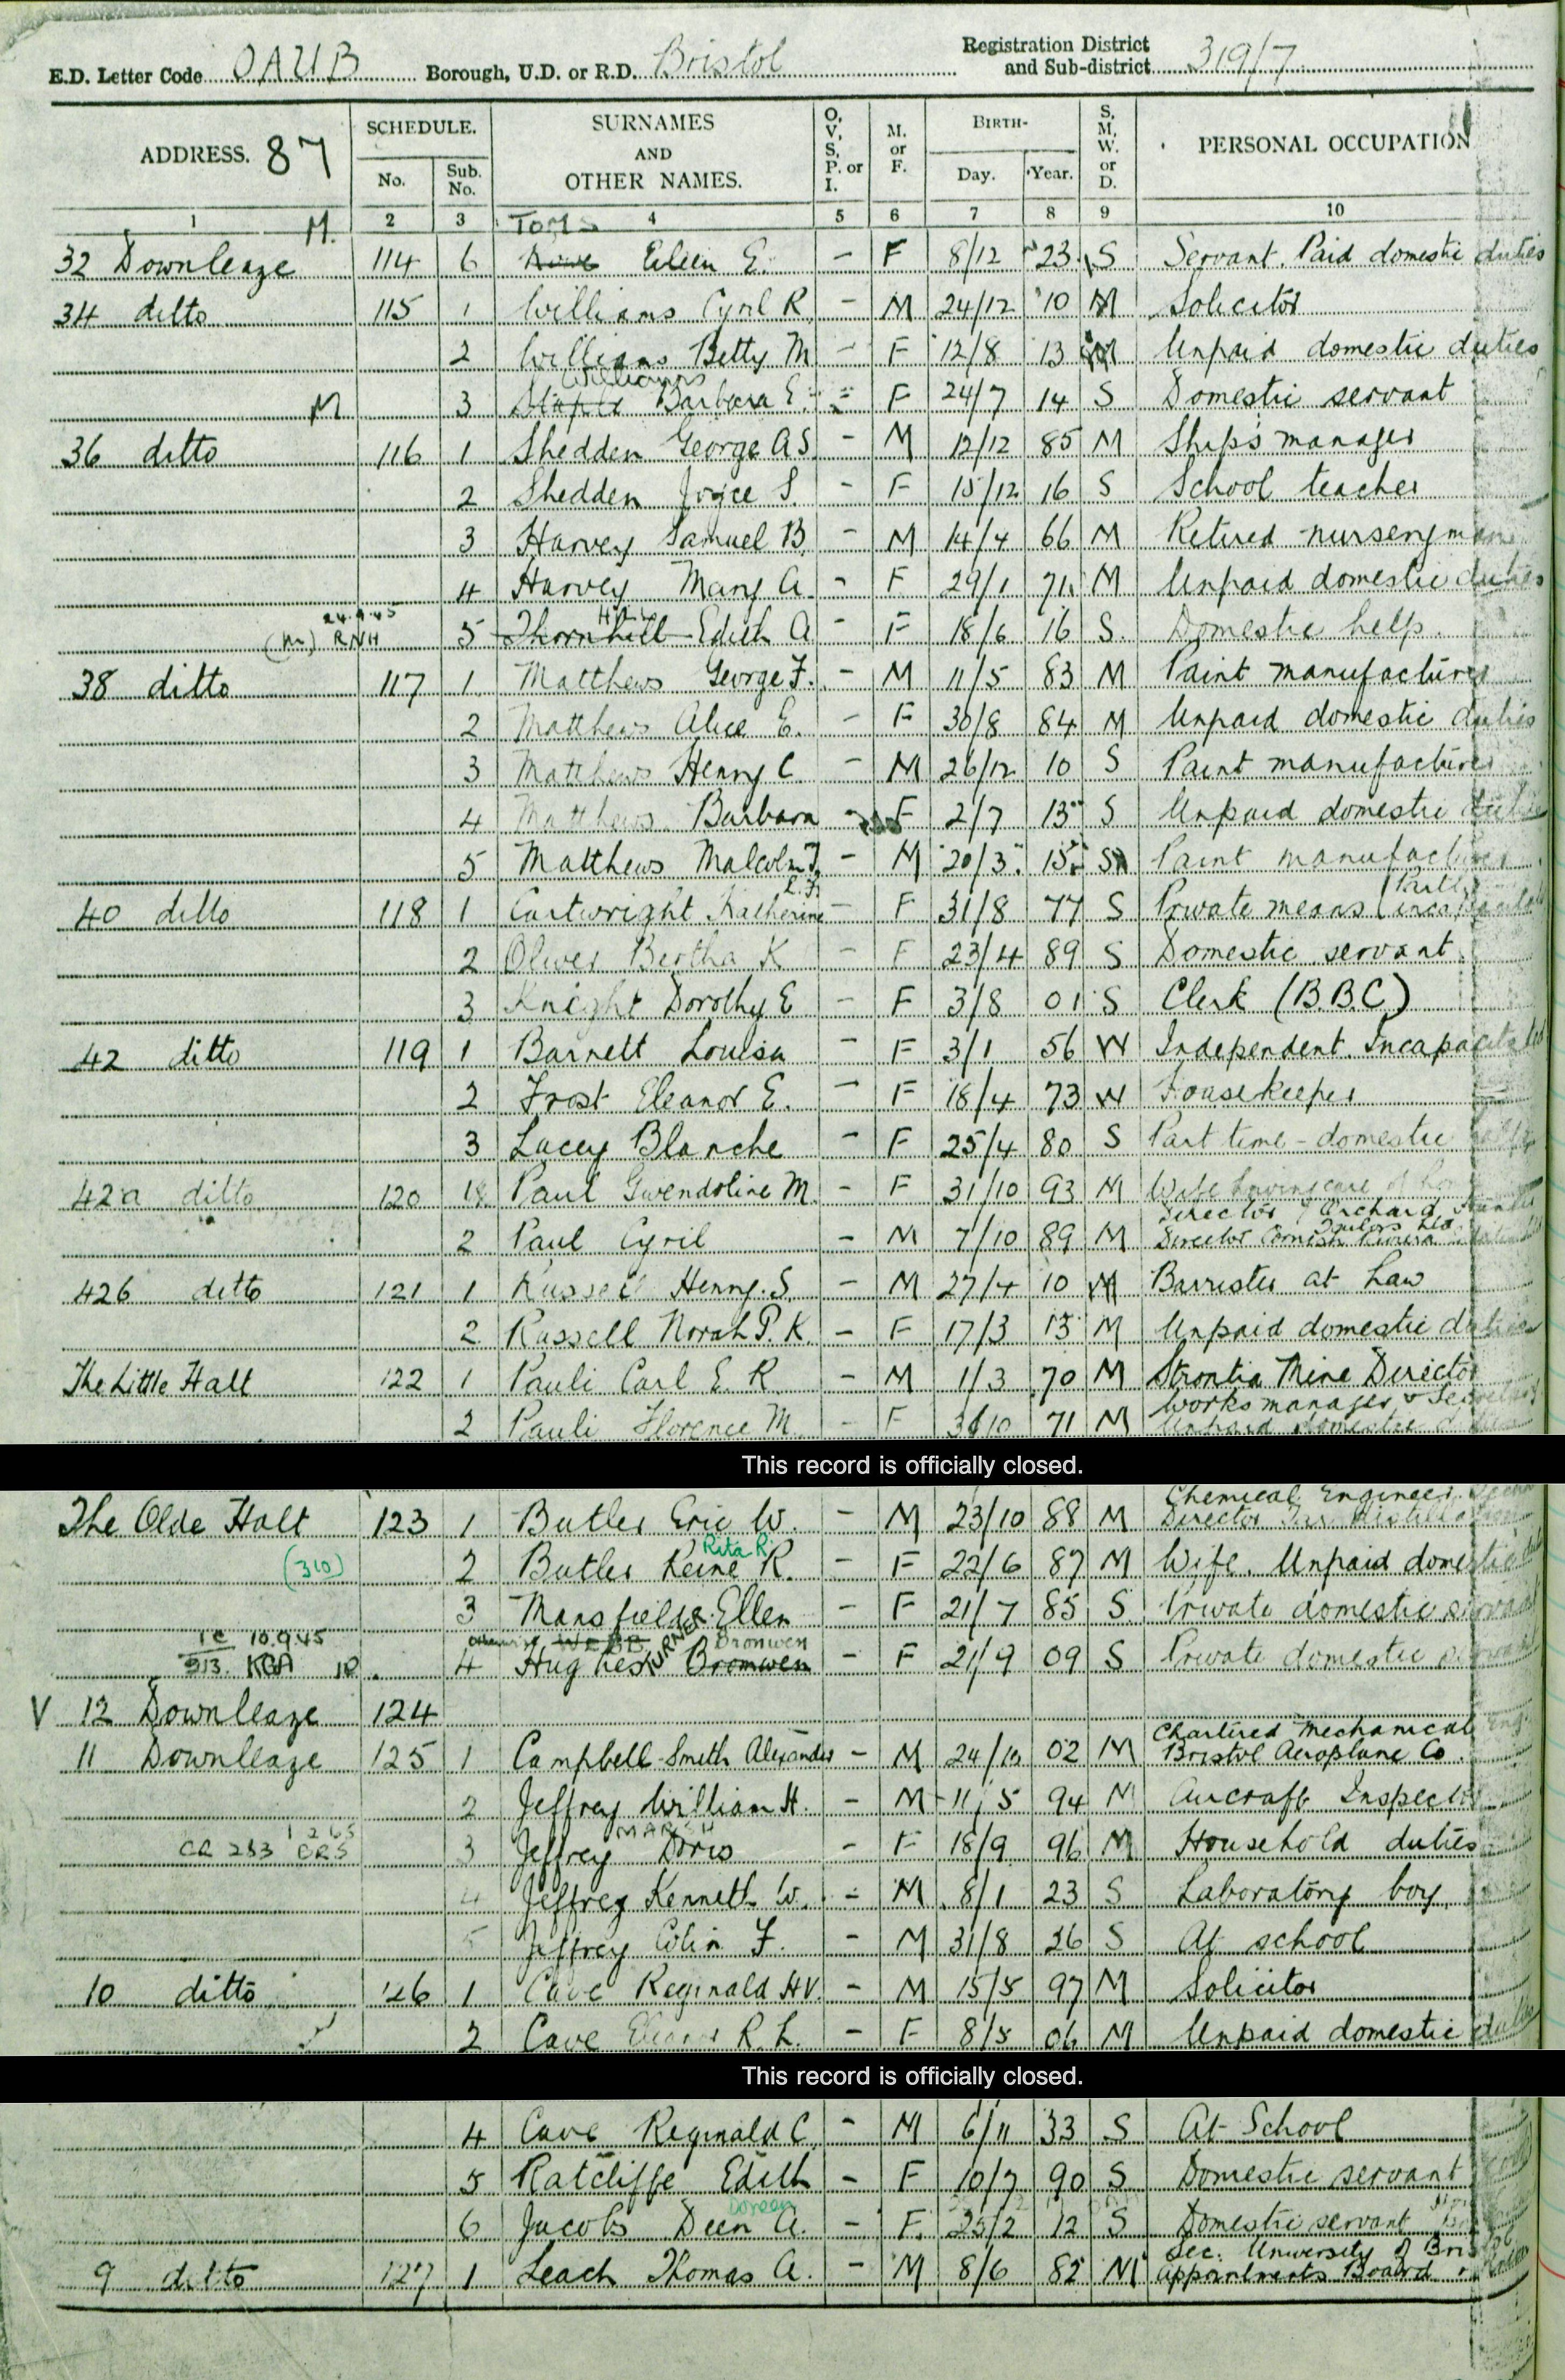 E.D. Letter Code OAUB Borough, U.D. or R.D. Bristol Registration District and Sub-district 319/7
ADDRESS. 87 SCHEDULE. No. Sub. No. SURNAMES AND OTHER NAMES. O, V, S, P. or I. M. or F. BIRTH- Day. Year. S, M, W, or D. PERSONAL OCCUPATION
1 2 3 4 5 6 7 8 9 10
M. TOMS
32 Downleaze 114 6 Eileen E. - F 8/12 23 S Servant. Paid domestic duties
34 ditto 115 1 Williams Cyril R. - M 24/12 10 M Solicitor
2 Williams Betty M - F 12/8 13 M Unpaid domestic duties
Williams
M 3 Barbara E. - F 24/7 14 S Domestic servant
36 ditto 116 1 Shedden George A S. - M 12/12 85 M Ships manager
2 Shedden Joyce S. - F 15/12 16 S School teacher
3 Harvey Samuel B. - M 14/4 66 M Retired nurseryman
4 Harvey Mary A. - F 29/1 71 M Unpaid domestic duties
24.9.45
(M) RNH 5 Thornhill Edith A. - F 18/6 16 S. Domestic help.
38 ditto 117 1 Matthews George F. - M 11/5 83 M Paint manufacturer
2 Matthews Alice E. - F 30/8 84 M Unpaid domestic duties
3 Matthews Henry C. - M 26/12 10 S Paint manufacturer
4 Matthews Barbara - F 2/7 13 S Unpaid domestic duties
5 Matthews Malcolm J. - M 20/3 15 S Paint manufacturer
40 ditto 118 1 Cartwright Katherine - F 31/8 77 S Private means (Partly incapacitated
2 Oliver Bertha K - F 23/4 89 S Domestic servant
3 Knight Dorothy E - F 3/8 01 S Clerk (B.B.C)
42 ditto 119 1 Barnett Louisa - F 3/1 56 W Independent. Incapacitated
2 Frost Eleanor E. - F 18/4 73 W Housekeeper
3 Lacey Blanche - F 25/4 80 S Part time - domestic
42a ditto 120 1 Paul Gwendoline M. - F 31/10 93 M Wife having care of
Director Orchard
Tailors Ltd.
2 Paul Cyril - M 7/10 89 M Director Cornish Riviera
42b ditto 121 1 Russell Henry. S. - M 27/4 10 M Barrister at Law
2 Russell Norah P. K. - F 17/3 13 M Unpaid domestic duties
The Little Halt 122 1 Pauli Carl E. R. - M 1/3 70 M Strontia Mine Director
Works manager & Secretary
2 Pauli Florence M. - F 3/10 71 M Unpaid domestic duties
This record is officially closed.
Chemical Engineer.
The Olde Halt 123 1 Butler Eric W. - M 23/10 88 M Director Tar Distillation
Rita R
(310) 2 Butler Reine R. - F 22/6 87 M Wife. Unpaid domestic
3 Mansfield Ellen - F 21/7 85 S. Private domestic servant
10.9.45 otherwise WEBB TURNER Bronwen
313. KBA 4 Hughes Bromwen - F 21/9 09 S Private domestic
V 12 Downleaze 124
Chartered mechanical Eng.
11 Downleaze 125 1 Campbell-Smith Alexander - M 24/10 02 M Bristol Aeroplane Co.
2 Jeffrey William H. - M 11/5 94 M Aircraft Inspector
MARSH
CR 283 CRS 3 Jeffrey Doris - F 18/9 96 M Household duties
4 Jeffrey Kenneth W. - M 8/1 23 S Laboratory boy
5 Jeffrey Colin F. - M 31/8 26 S At school
10 ditto 126 1 Cave Reginald HV. - M 15/5 97 M Solicitor
2 Cave R. L. - F 8/5 06 M Unpaid domestic duties
This record is officially closed.
4 Cave Reginald C. - M 6/11 33 S At School
5 Ratcliffe Edith - F 10/7 90 S Domestic servant
Doreen
6 Jacobs Deen A. - F. 25/2 12 S Domestic servant
Sec. University of Bris
9 ditto 127 1 Leach Thomas A. - M 8/6 82 M Appointments Board